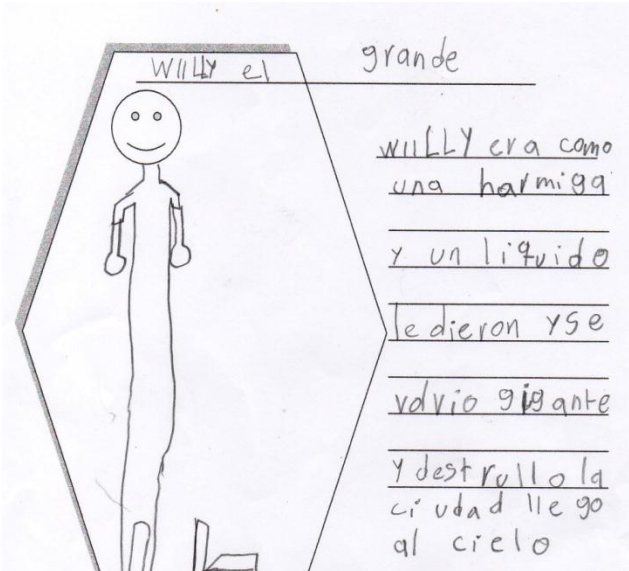 WillY el grande
WiiLLY era como
una harmiga
y un liquido
le dieron y se
volvio gigante
y destrullo la
ciudad llego
al cielo